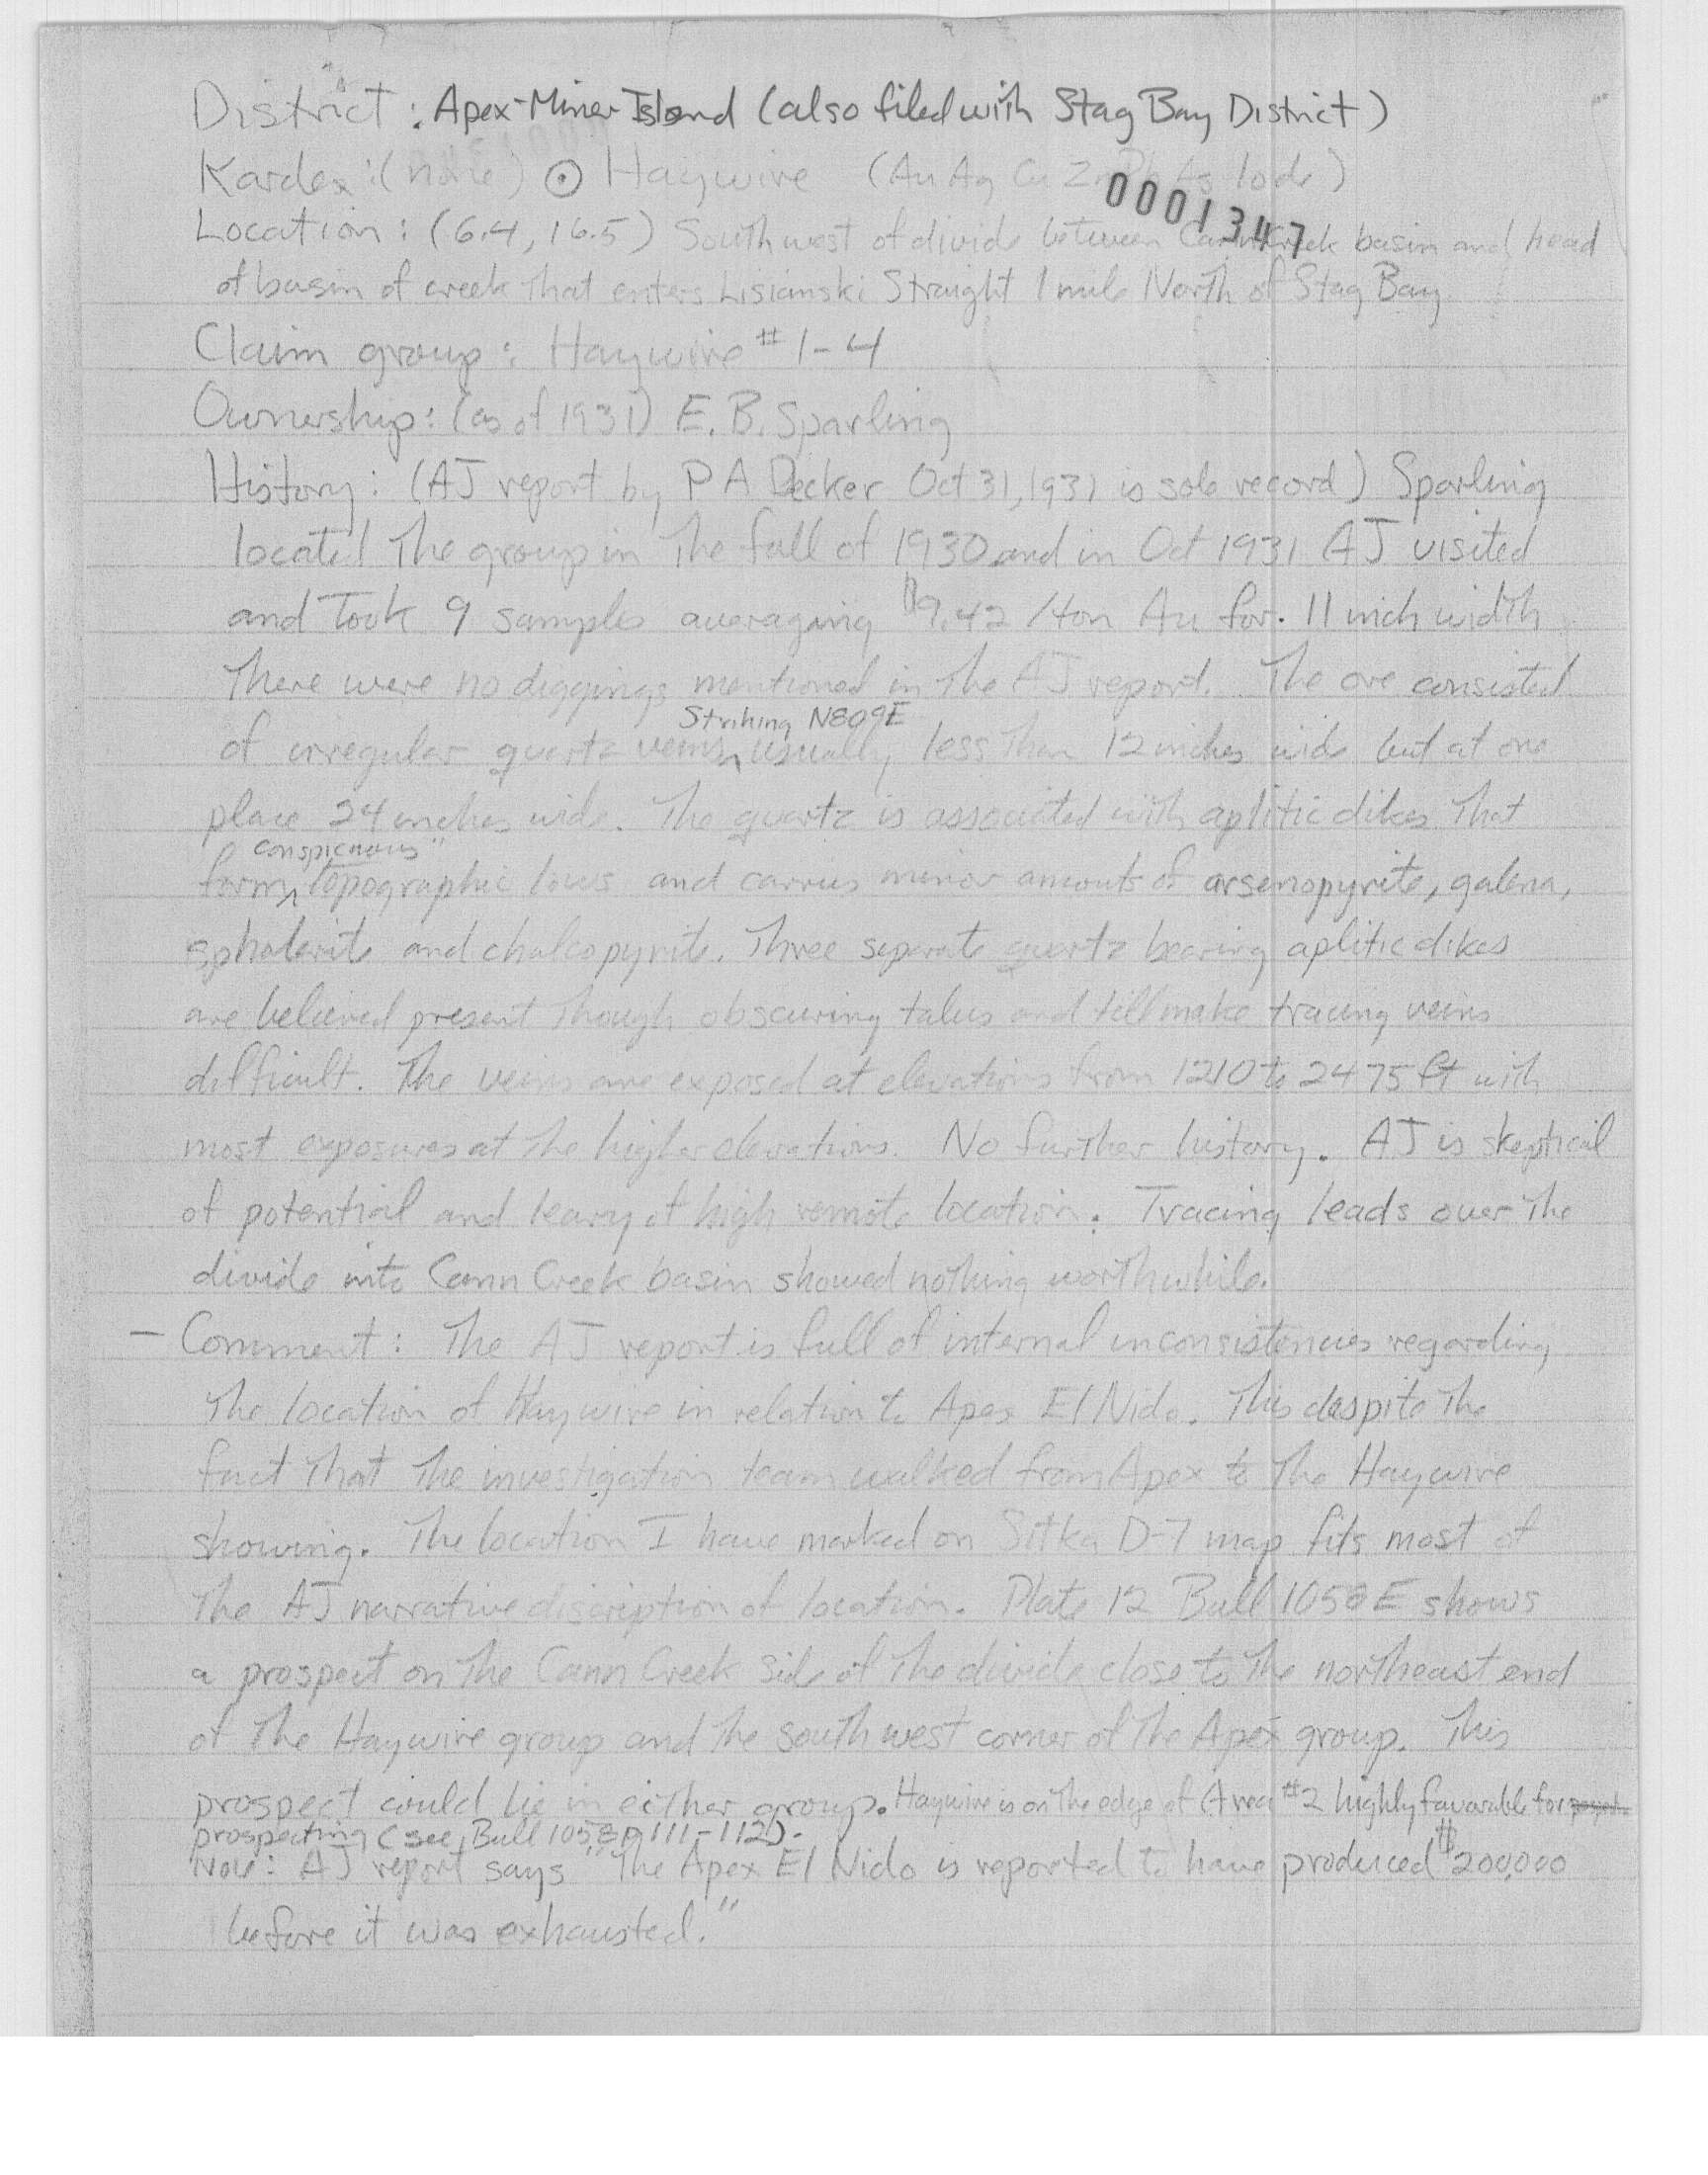 District: Apex-Miner Island (also filed with Stag Bay District)
Kardex: (none) ⊙ Haywire (Au Ag Cu Zn Pb As lode)
0001347
Location: (6.4, 16.5) Southwest of divide between Cann Creek basin and head
of basin of creek that enters Lisianski Straight 1 mile North of Stag Bay
Claim group: Haywire #1-4
Ownership: (as of 1931) E. B. Sparling
History: (AJ report by P A Decker Oct 31, 1931 is sole record) Sparling
located The group in The fall of 1930 and in Oct 1931 AJ visited
and Took 9 samples averaging $9.42 /ton Au for. 11 inch width
There were no diggings mentioned in The AJ report. The ore consisted
Striking N80°E
of irregular quartz veins, usually less Than 12 inches wide but at one
place 24 inches wide. The quartz is associated with aplitic dikes That
conspicuous"
form topographic lows and carries minor amounts of arsenopyrite, galena,
sphalerite and chalcopyrite. Three separate quartz bearing aplitic dikes
are believed present Though obscuring talus and till make tracing veins
difficult. The veins are exposed at elevations from 1210 to 2475 ft with
most exposures at The higher elevations. No further history. AJ is skeptical
of potential and leary of high remote location. Tracing leads over The
divide into Cann Creek basin showed nothing worthwhile.
- Comment: The AJ report is full of internal inconsistencies regarding
The location of Haywire in relation to Apex El Nido. This despite The
fact That The investigation team walked from Apex to The Haywire
showing. The location I have marked on Sitka D-7 map fits most of
The AJ narrative discription of location. Plate 12 Bull 1058E shows
a prospect on The Cann Creek side of The divide close to The northeast end
of The Haywire group and The southwest corner of The Apex group. This
prospect could lie in either group. Haywire is on The edge of Area #2 highly favorable for
prospecting (see Bull 1058E p 111-112).
Note: AJ report says "The Apex El Nido is reported to have produced $200,000
before it was exhausted."